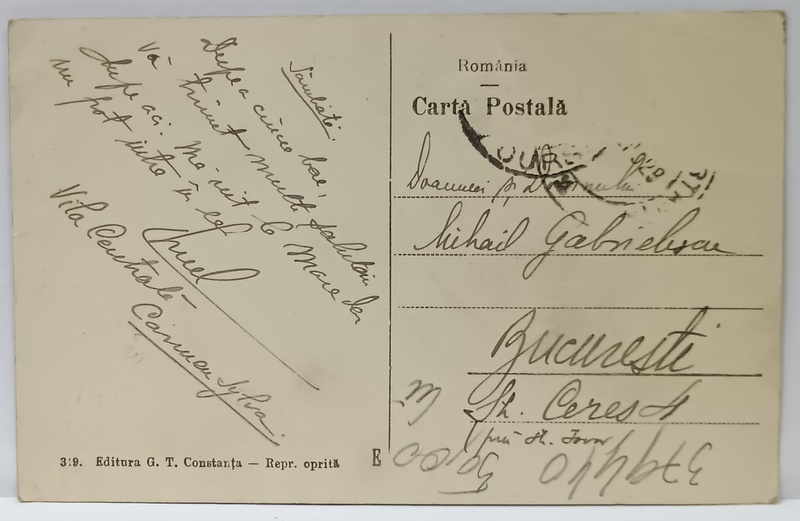 Sâmbătă.
După cinci băi,
Vă trimet multe salutări de
după aci. Mă uit la mare dar
nu pot intra în ea
Vila Centrală
Carmen Sylva.
România
Carta Postală
Doamnei și Domnului
Mihail Gabrielescu
București
Str. Ceres 4
prin str. Izvor
319. Editura G. T. Constanța — Repr. oprită E